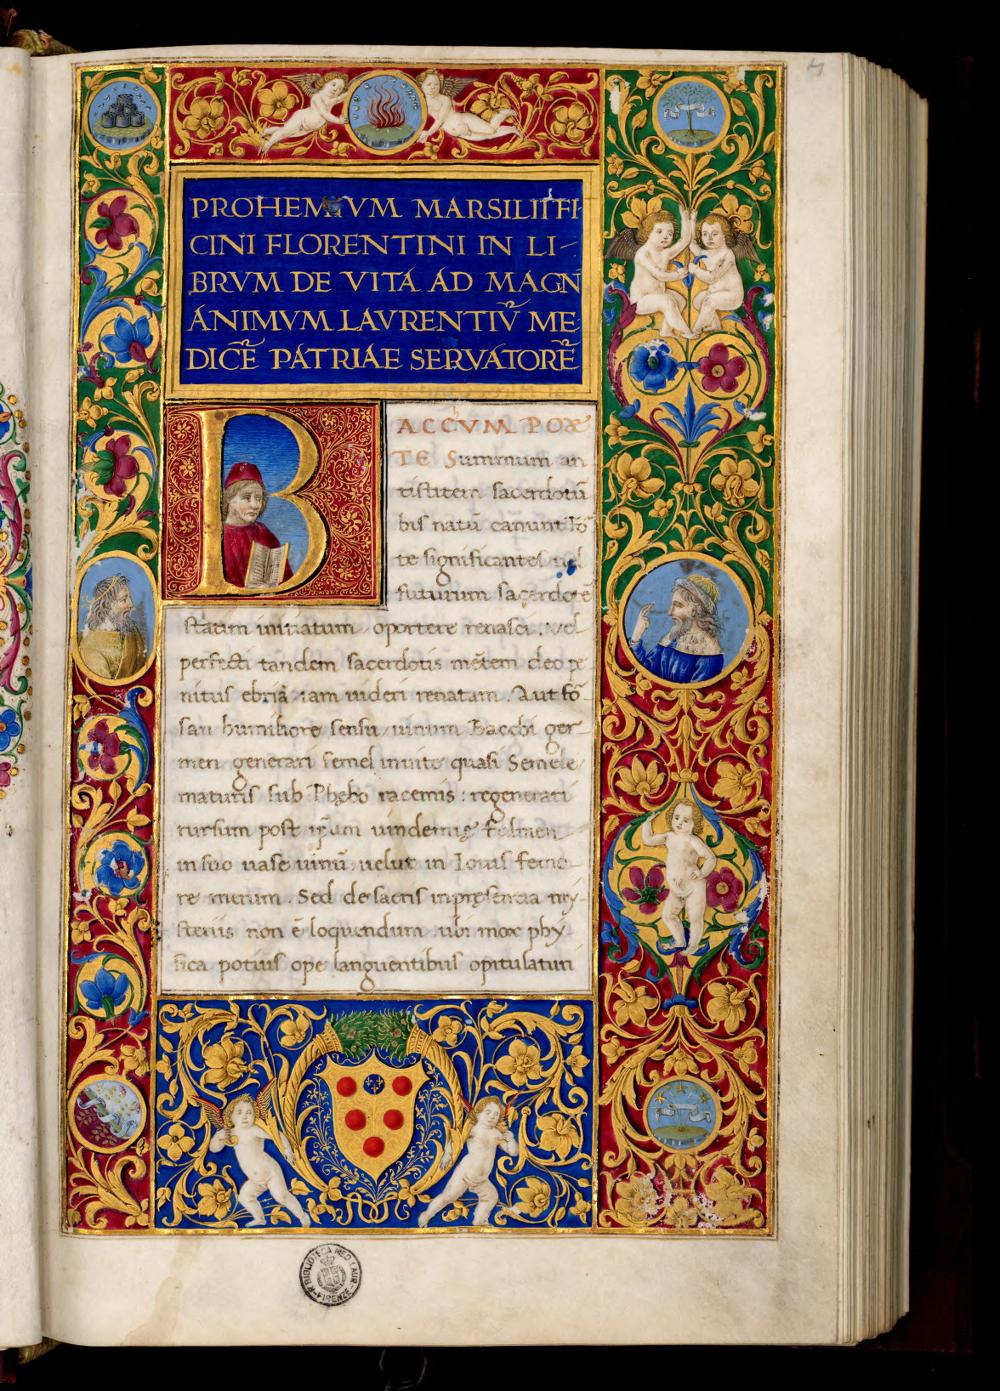 PROHEMIVM MARSILII FI
CINI FLORENTINI IN LI-
BRVM DE VITA AD MAGN
ANIMVM LAVRENTIV̄ ME
DICĒ PATRIAE SERVATORĒ
BACCVM POE
TE Summum an
tistitem sacerdotū
bis natū canunt: fo
te significantes uel
futurum sacerdotē
statim initiatum oportere renasci. uel
perfecti tandem sacerdotis mētem deo pe
nitus ebriā iam uideri renatam. Aut fo
san humiliore sensu uinum Bacchi ger
men generari semel in uite quasi Semele
maturis sub Phebo racemis: regenerari
rursum post ipsum uindemię fulmen
in suo uase uinū: uelut in Iouis femo
re merum. Sed de sacris in pręsentia my-
steriis non ē loquendum ubi mox phy
sica potius ope languentibus opitulaturi
BIBLIOTECA MED. LAUR.
FIRENZE